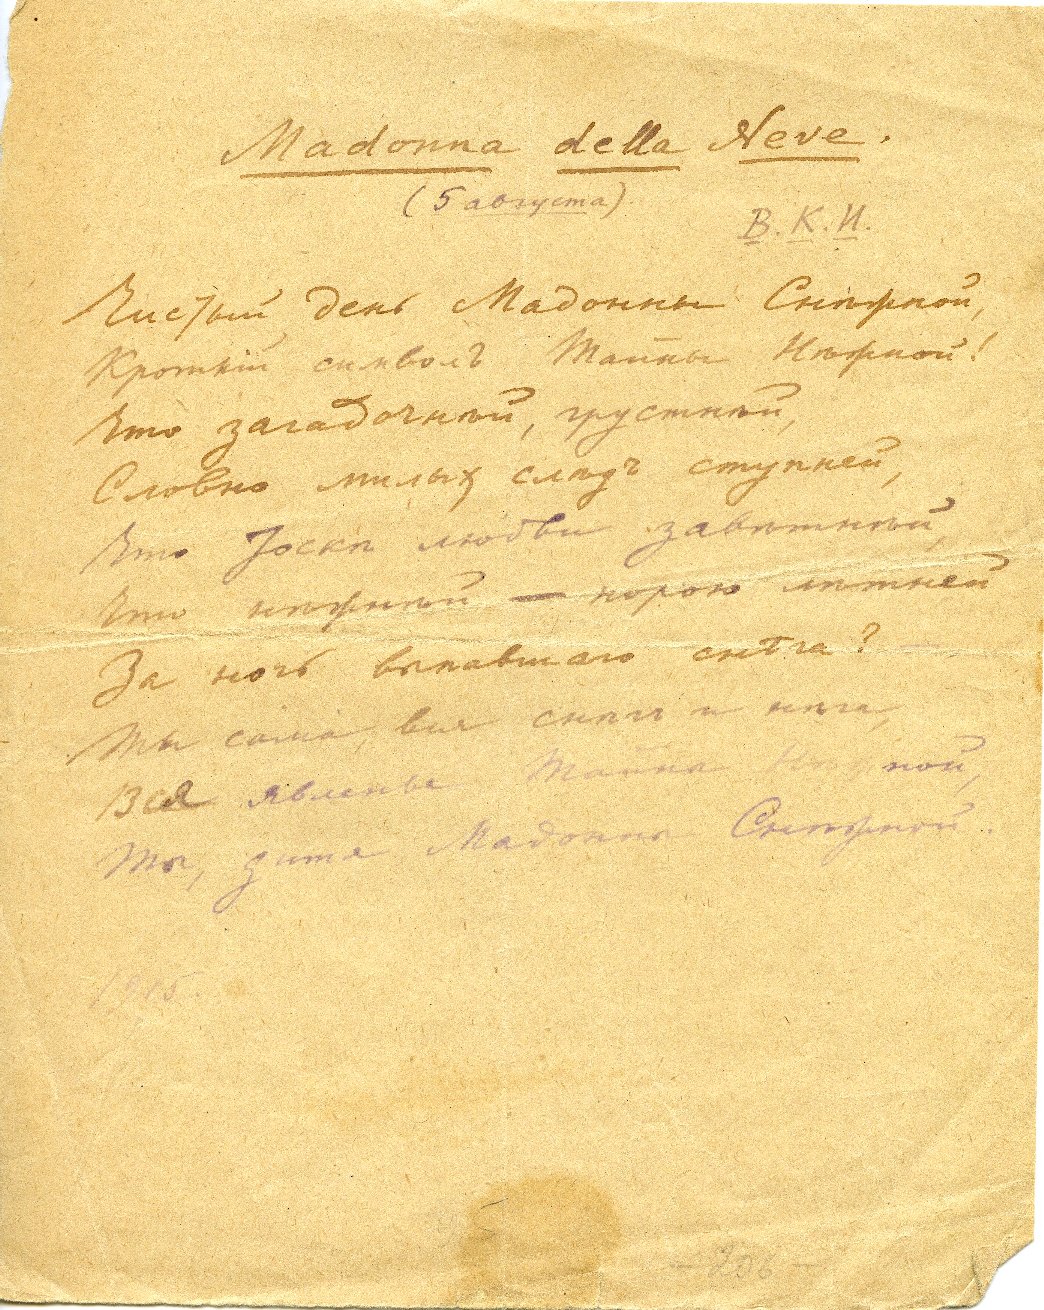 Madonna della Neve.
(5 августа)
В. К. И.
Чистый день Мадонны Снѣжной,
Кроткій символъ Тайны Нѣжной!
Что загадочнѣй, грустнѣй,
Словно милыхъ слѣдъ ступней,
Что Тоскѣ любви завѣтнѣй,
Что нѣжнѣй — порою лѣтней
За ночь выпавшаго снѣга?
Ты сама, вся снѣгъ и нѣга,
Вся явленье Тайны Нѣжной,
Ты, дитя Мадонны Снѣжной.
1915.
— 206 —